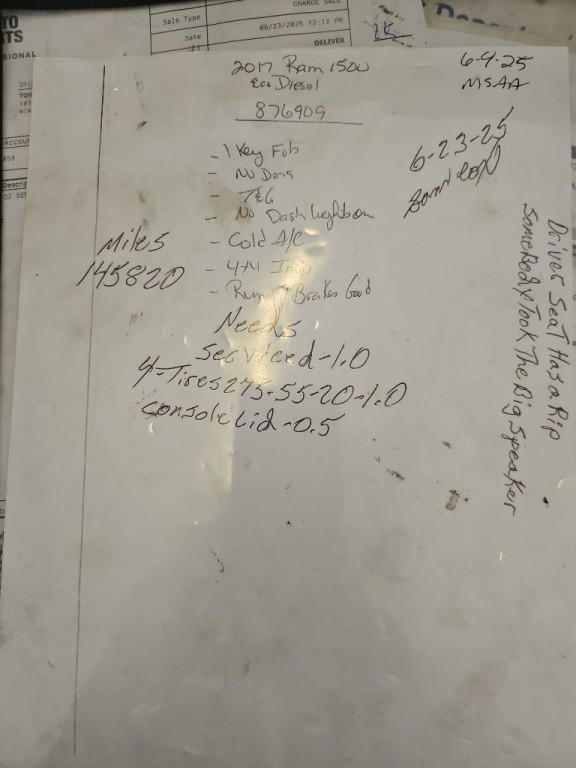 TO
RTS
SIONAL
CHARGE SALE
Sale Type
06/23/2025 12:13 PM
Date
DELIVER
2017 Ram 1500
Eco Diesel
876909
6-4-25
MSAA
6-23-25
- 1 Key Fob
- No
-
- No Dash
- Cold A/C
- 4x4
- Brakes Good
Miles
145820
Needs
Serviced-1.0
4-Tires 275-55-20-1.0
Console Lid-0.5
Driver Seat Has a Rip
Somebody Took The Big Speaker